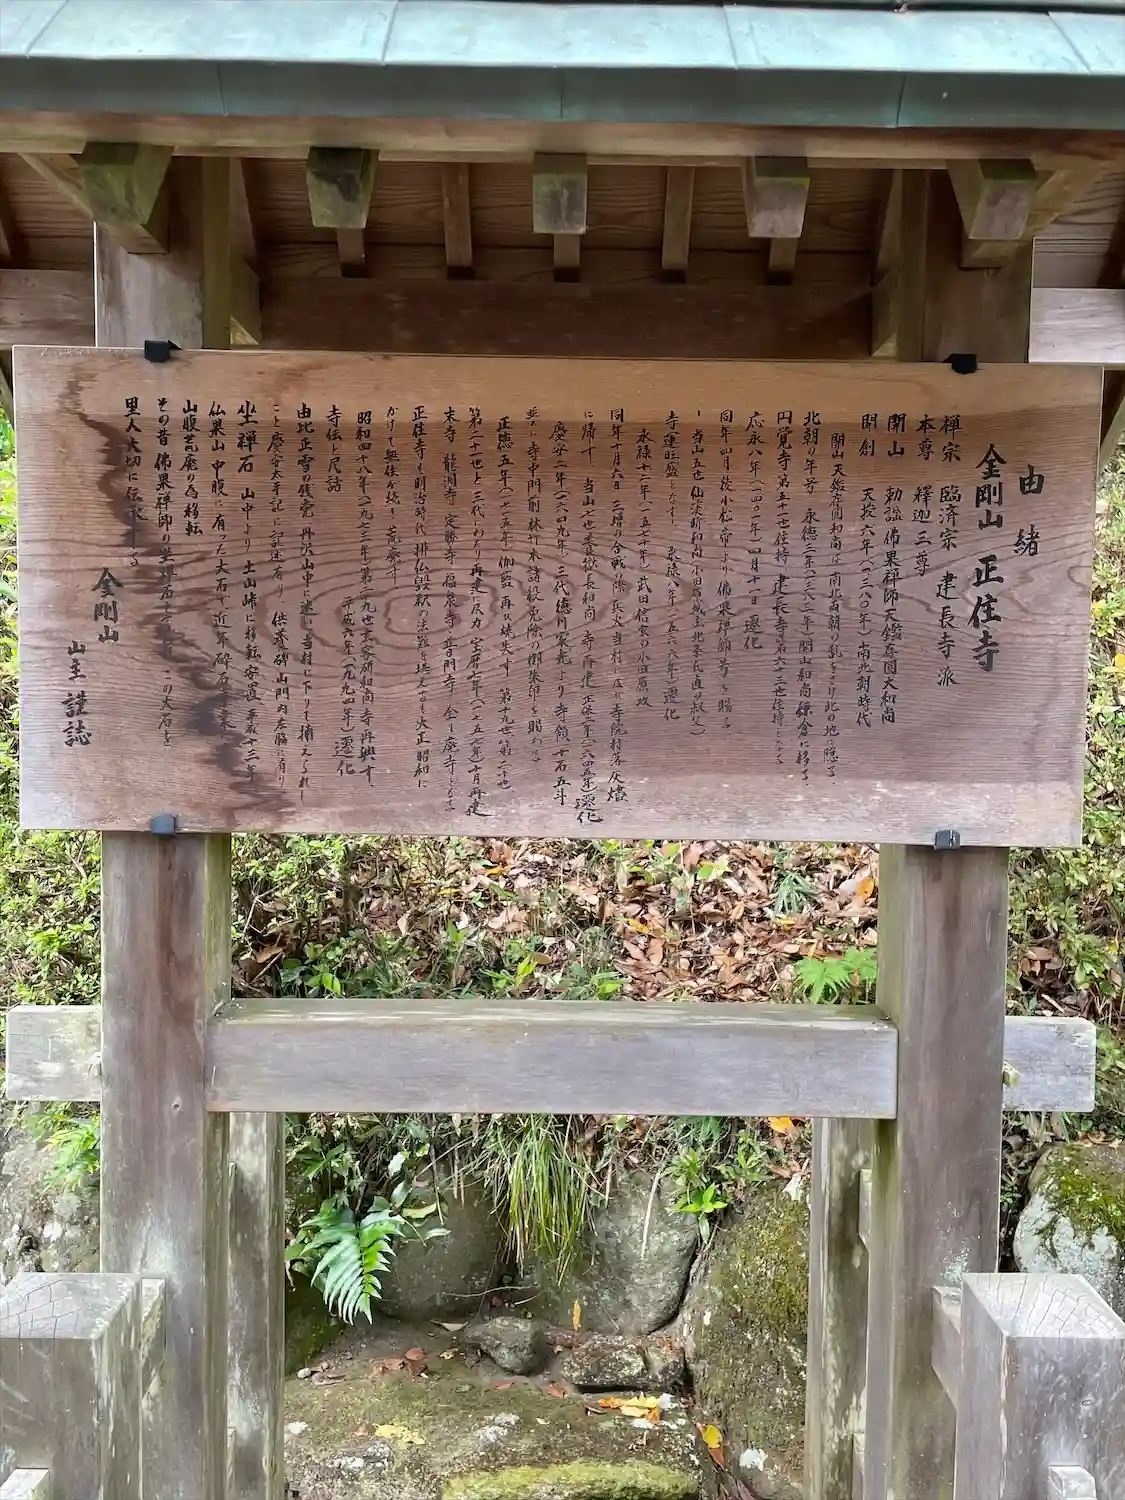 由緒
金剛山 正住寺
禅宗 臨済宗 建長寺派
本尊 釋迦三尊
開山 勅諡佛果禅師天鑑存圓大和尚
開創 天授六年（一三八〇年）南北朝時代
開山天鑑存圓和尚は南北両朝の乱をさけ北の地に隠る、
北朝の年号 永徳三年（一三八三年）開山和尚鎌倉に移る、
円覚寺第五十一世住持 建長寺第六十三世住持となる
応永八年（一四〇一年）四月十一日 遷化
同年四月後小松帝より佛果禅師号を賜る
当山五世仙渓新和尚（小田原城主北条氏直の叔父）
寺運旺盛となす 永禄八年（一五六八年）遷化
永禄十二年（一五七〇年）武田信玄の小田原攻
同年十月六日三増の合戦の際兵火当村に及び寺院村落灰燼
に帰す 当山七世 嶽長和尚 寺再建 正保二年（一六四五年）遷化
慶安二年（一六四九年）三代徳川家光より寺領十石五斗
並に寺中門前林竹木諸役免除の御朱印を賜わる
正徳五年（一七一五年）伽藍再び焼失す 第十九世第二十世
第二十一世と三代にわたり再建に尽力 宝暦七年（一七五七年）十月再建
末寺 龍洞寺 定勝寺 福泉寺 普門寺 全て廃寺となる
正住寺も明治時代排仏毀釈の法難に堪えるも大正昭和に
かけて無住が続き荒廃す
昭和四十八年（一九七三年）第二十九世玄容研和尚寺再興す、
平成六年（一九九四年）遷化
寺伝と民話
由比正雪の残党 丹沢山中に迷い当村に下りて捕えられし
こと慶安太平記に記述有り 供養碑山門内左脇に有り
坐禅石 山中より土山峠に移転安置 平成十三年
仏果山中腹に有った大石で近年砕石事業
山腹荒廃の為移転
その昔佛果禅師の坐禅石 この大石を
里人大切に伝承
金剛山
山主 謹誌